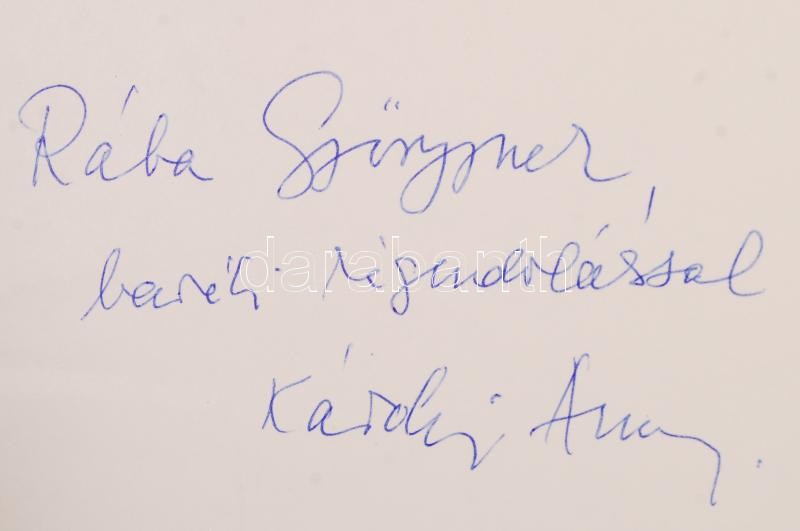 Rába Györgynek,
baráti rágondolással
darabanth
Károlyi Amy.